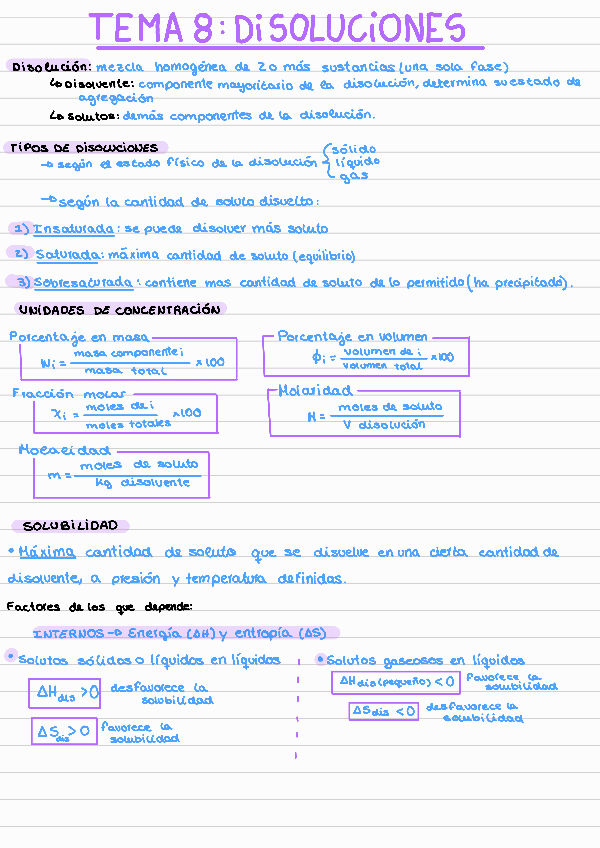 TEMA 8: DISOLUCIONES
Disolución: mezcla homogénea de 2 o más sustancias (una sola fase)
↳ Disolvente: componente mayoritario de la disolución, determina su estado de
agregación
↳ solutos: demás componentes de la disolución.
TIPOS DE DISOLUCIONES
→ según el estado físico de la disolución { sólido
líquido
gas
→ según la cantidad de soluto disuelto:
1) Insaturada: se puede disolver más soluto
2) Saturada: máxima cantidad de soluto (equilibrio)
3) Sobresaturada: contiene mas cantidad de soluto de lo permitido (ha precipitado).
UNIDADES DE CONCENTRACIÓN
Porcentaje en masa
Wi = masa componente i / masa total × 100
Porcentaje en volumen
ϕi = volumen de i / volumen total × 100
Fracción molar
χi = moles de i / moles totales × 100
Molaridad
M = moles de soluto / V disolución
Molalidad
m = moles de soluto / kg disolvente
SOLUBILIDAD
• Máxima cantidad de soluto que se disuelve en una cierta cantidad de
disolvente, a presión y temperatura definidas.
Factores de los que depende:
INTERNOS → Energía (ΔH) y entropía (ΔS)
• Solutos sólidos o líquidos en líquidos
ΔHdis > 0 desfavorece la
solubilidad
ΔSdis > 0 favorece la
solubilidad
• Solutos gaseosos en líquidos
ΔHdis (pequeño) < 0 favorece la
solubilidad
ΔSdis < 0 desfavorece la
solubilidad